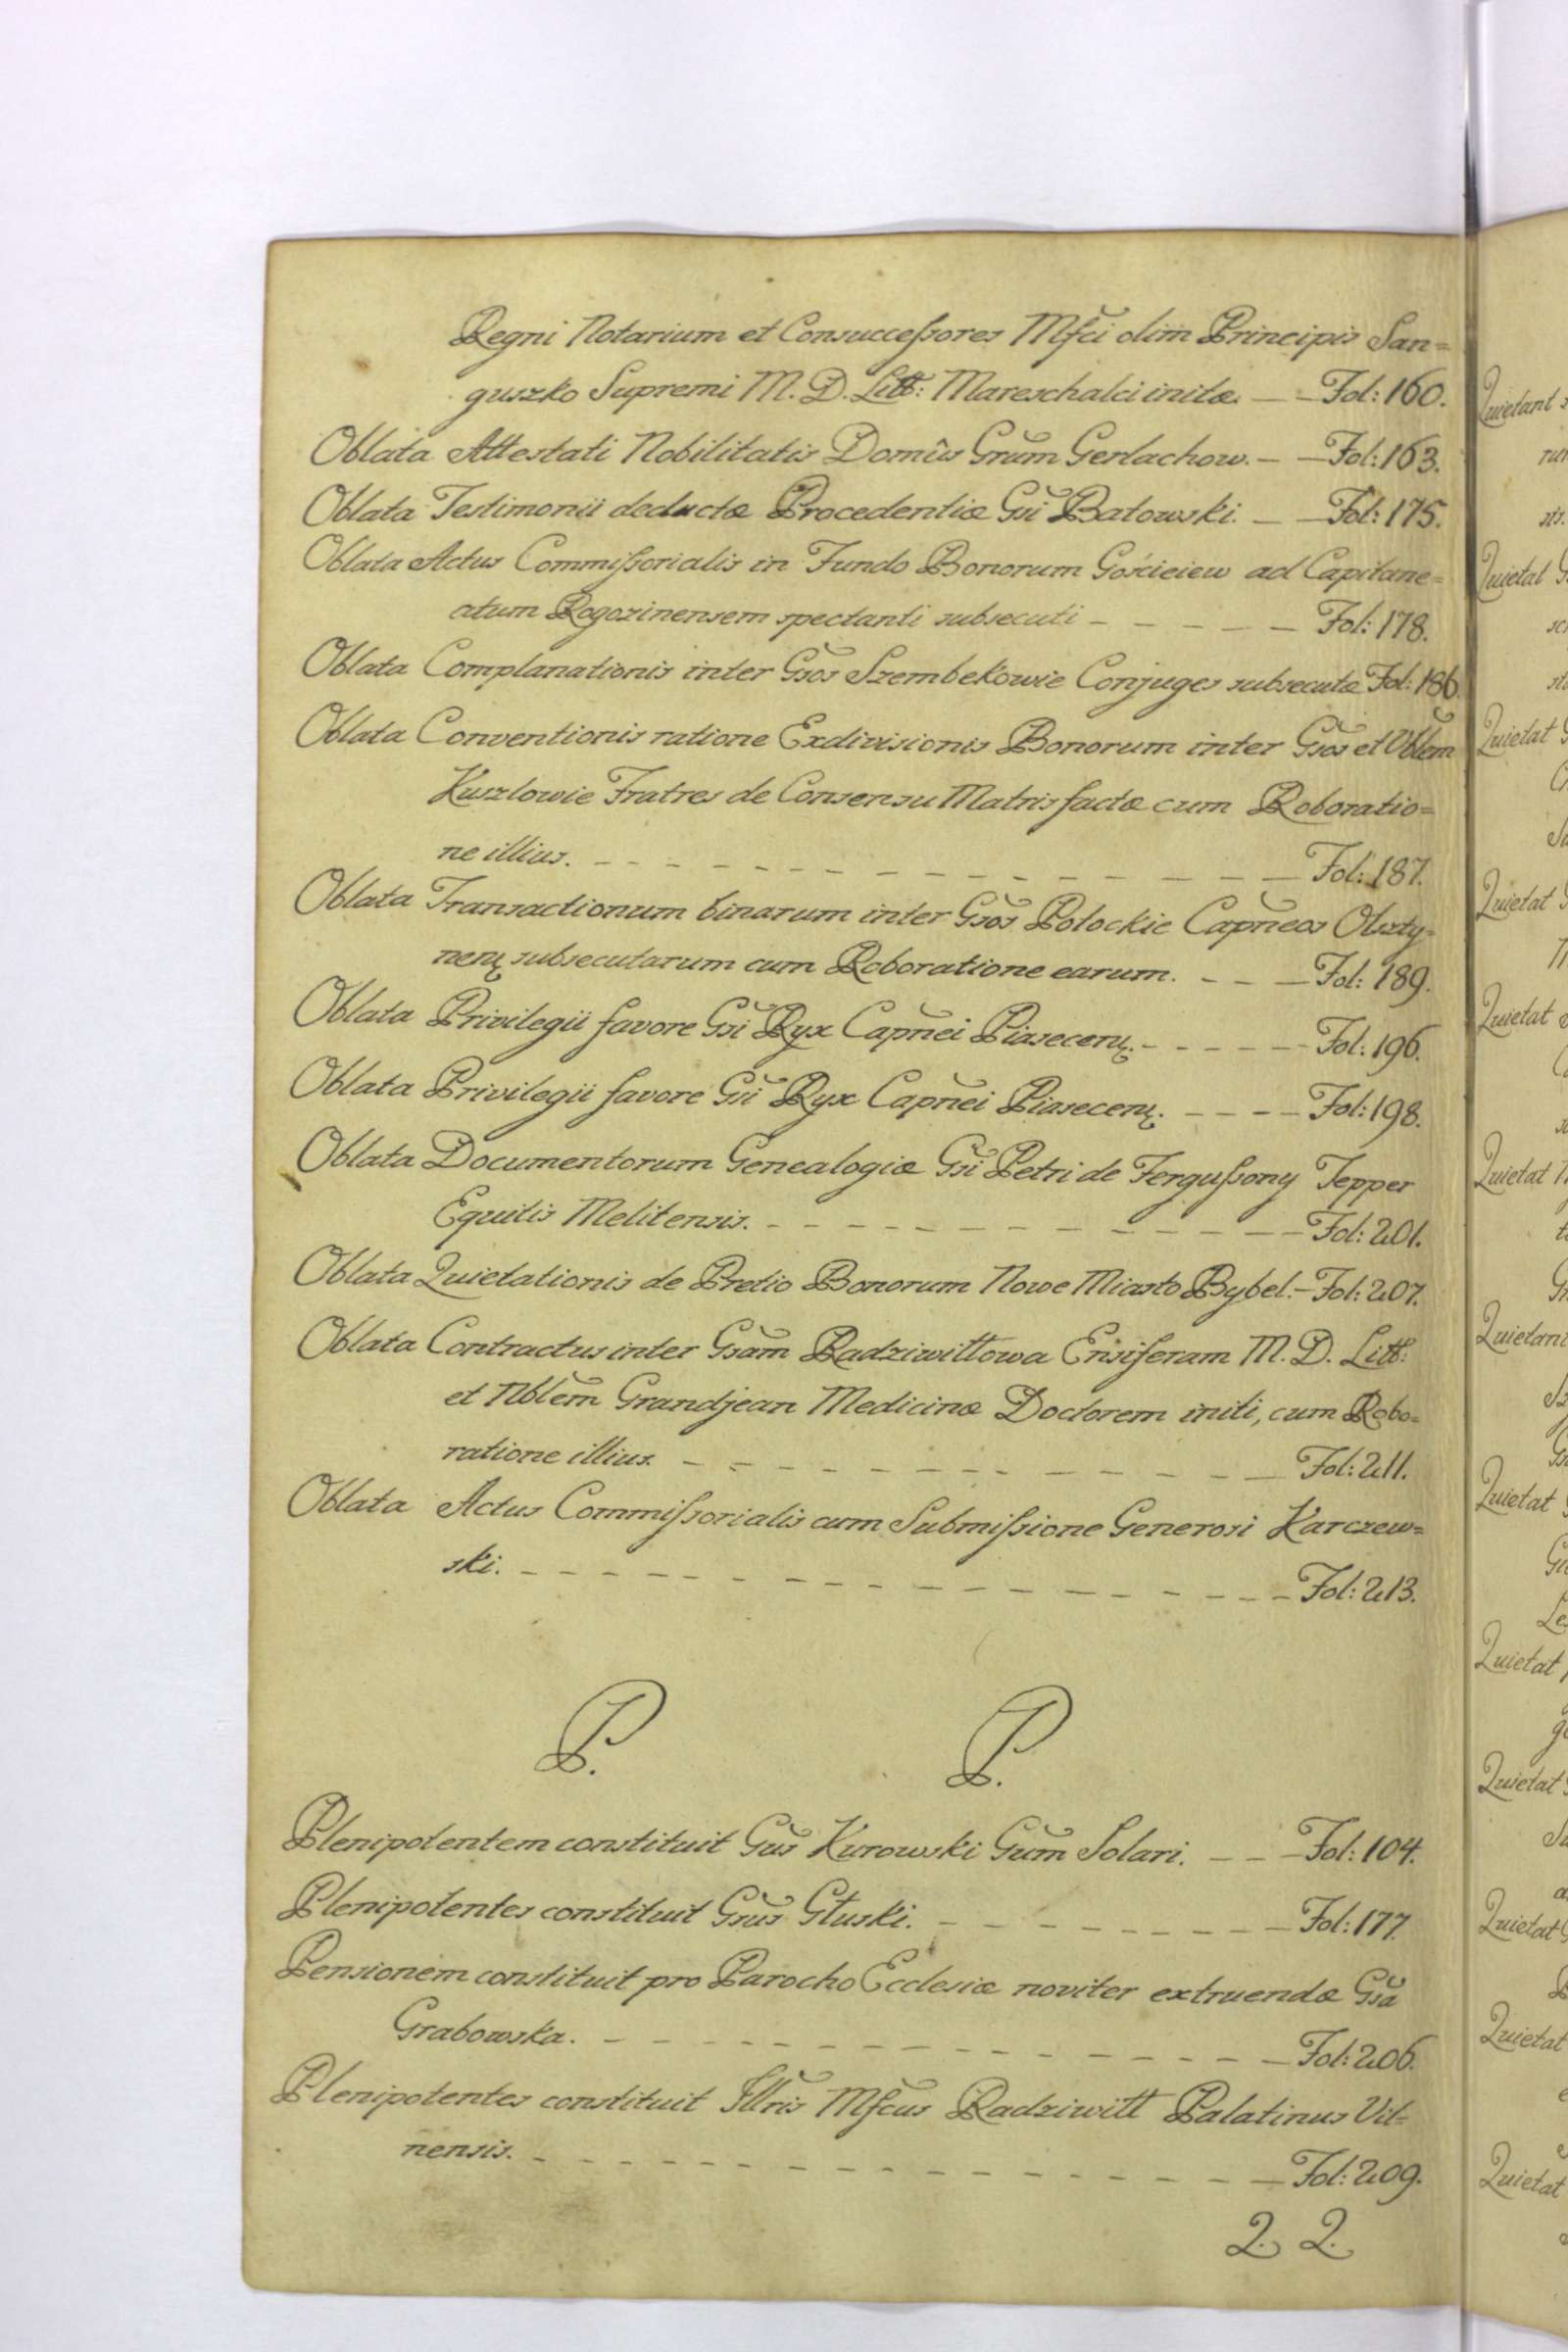 Regni Notarium et Consuccessores Mfci olim Principis San=
guszko Supremi M. D. Litt: Mareschalci initæ. — — Fol: 160.
Oblata Attestati Nobilitatis Domûs Grum Gerlachow. — — Fol: 163.
Oblata Testimonii deductæ Procedentiæ Gsi Batowski. — — Fol: 175.
Oblata Actus Commissorialis in Fundo Bonorum Gościeiew ad Capitane=
atum Rogozinensem spectanti subsecuti — — — — — — Fol: 178.
Oblata Complanationis inter Gsos Szembekowie Conjuges subsecutæ Fol: 186.
Oblata Conventionis ratione Exdivisionis Bonorum inter Gsos et Nblem
Kuszlowie Fratres de Consensu Matris factæ cum Roboratio=
ne illius. — — — — — — — — — — — — — — Fol: 187.
Oblata Transactionum binarum inter Gsos Potockie Capneos Olszty=
nen̨ subsecutarum cum Roboratione earum. — — — Fol: 189.
Oblata Privilegii favore Gsi Ryx Capnei Piasecen̨. — — — — — Fol: 196.
Oblata Privilegii favore Gsi Ryx Capnei Piasecen̨. — — — — Fol: 198.
Oblata Documentorum Genealogiæ Gsi Petri de Fergussony Tepper
Equitis Melitensis. — — — — — — — — — — — — Fol: 201.
Oblata Quietationis de Pretio Bonorum Nowe Miasto Bybel. — Fol: 207.
Oblata Contractus inter Gsam Radziwiłłowa Ensiferam M. D. Litt:
et Nblem Grandjean Medicinæ Doctorem initi, cum Robo=
ratione illius. — — — — — — — — — — — — — Fol: 211.
Oblata Actus Commissorialis cum Submissione Generosi Karczew=
ski. — — — — — — — — — — — — — — — — — Fol: 213.
P. P.
Plenipotentem constituit Gus Kurowski Gum Solari. — — — Fol: 104.
Plenipotentes constituit Gsus Głuski. — — — — — — — — — Fol: 177.
Pensionem constituit pro Parocho Ecclesiæ noviter extruendæ Gsa
Grabowska. — — — — — — — — — — — — — — — Fol: 206.
Plenipotentes constituit Illris Mfcus Radziwiłł Palatinus Vil=
nensis. — — — — — — — — — — — — — — — — — Fol: 209.
2. 2.
Quietant
Quietat
Quietat
Quietat
Quietat
Quietat
Quietat
Quietat
Quietat
Quietat
Quietat
Quietat